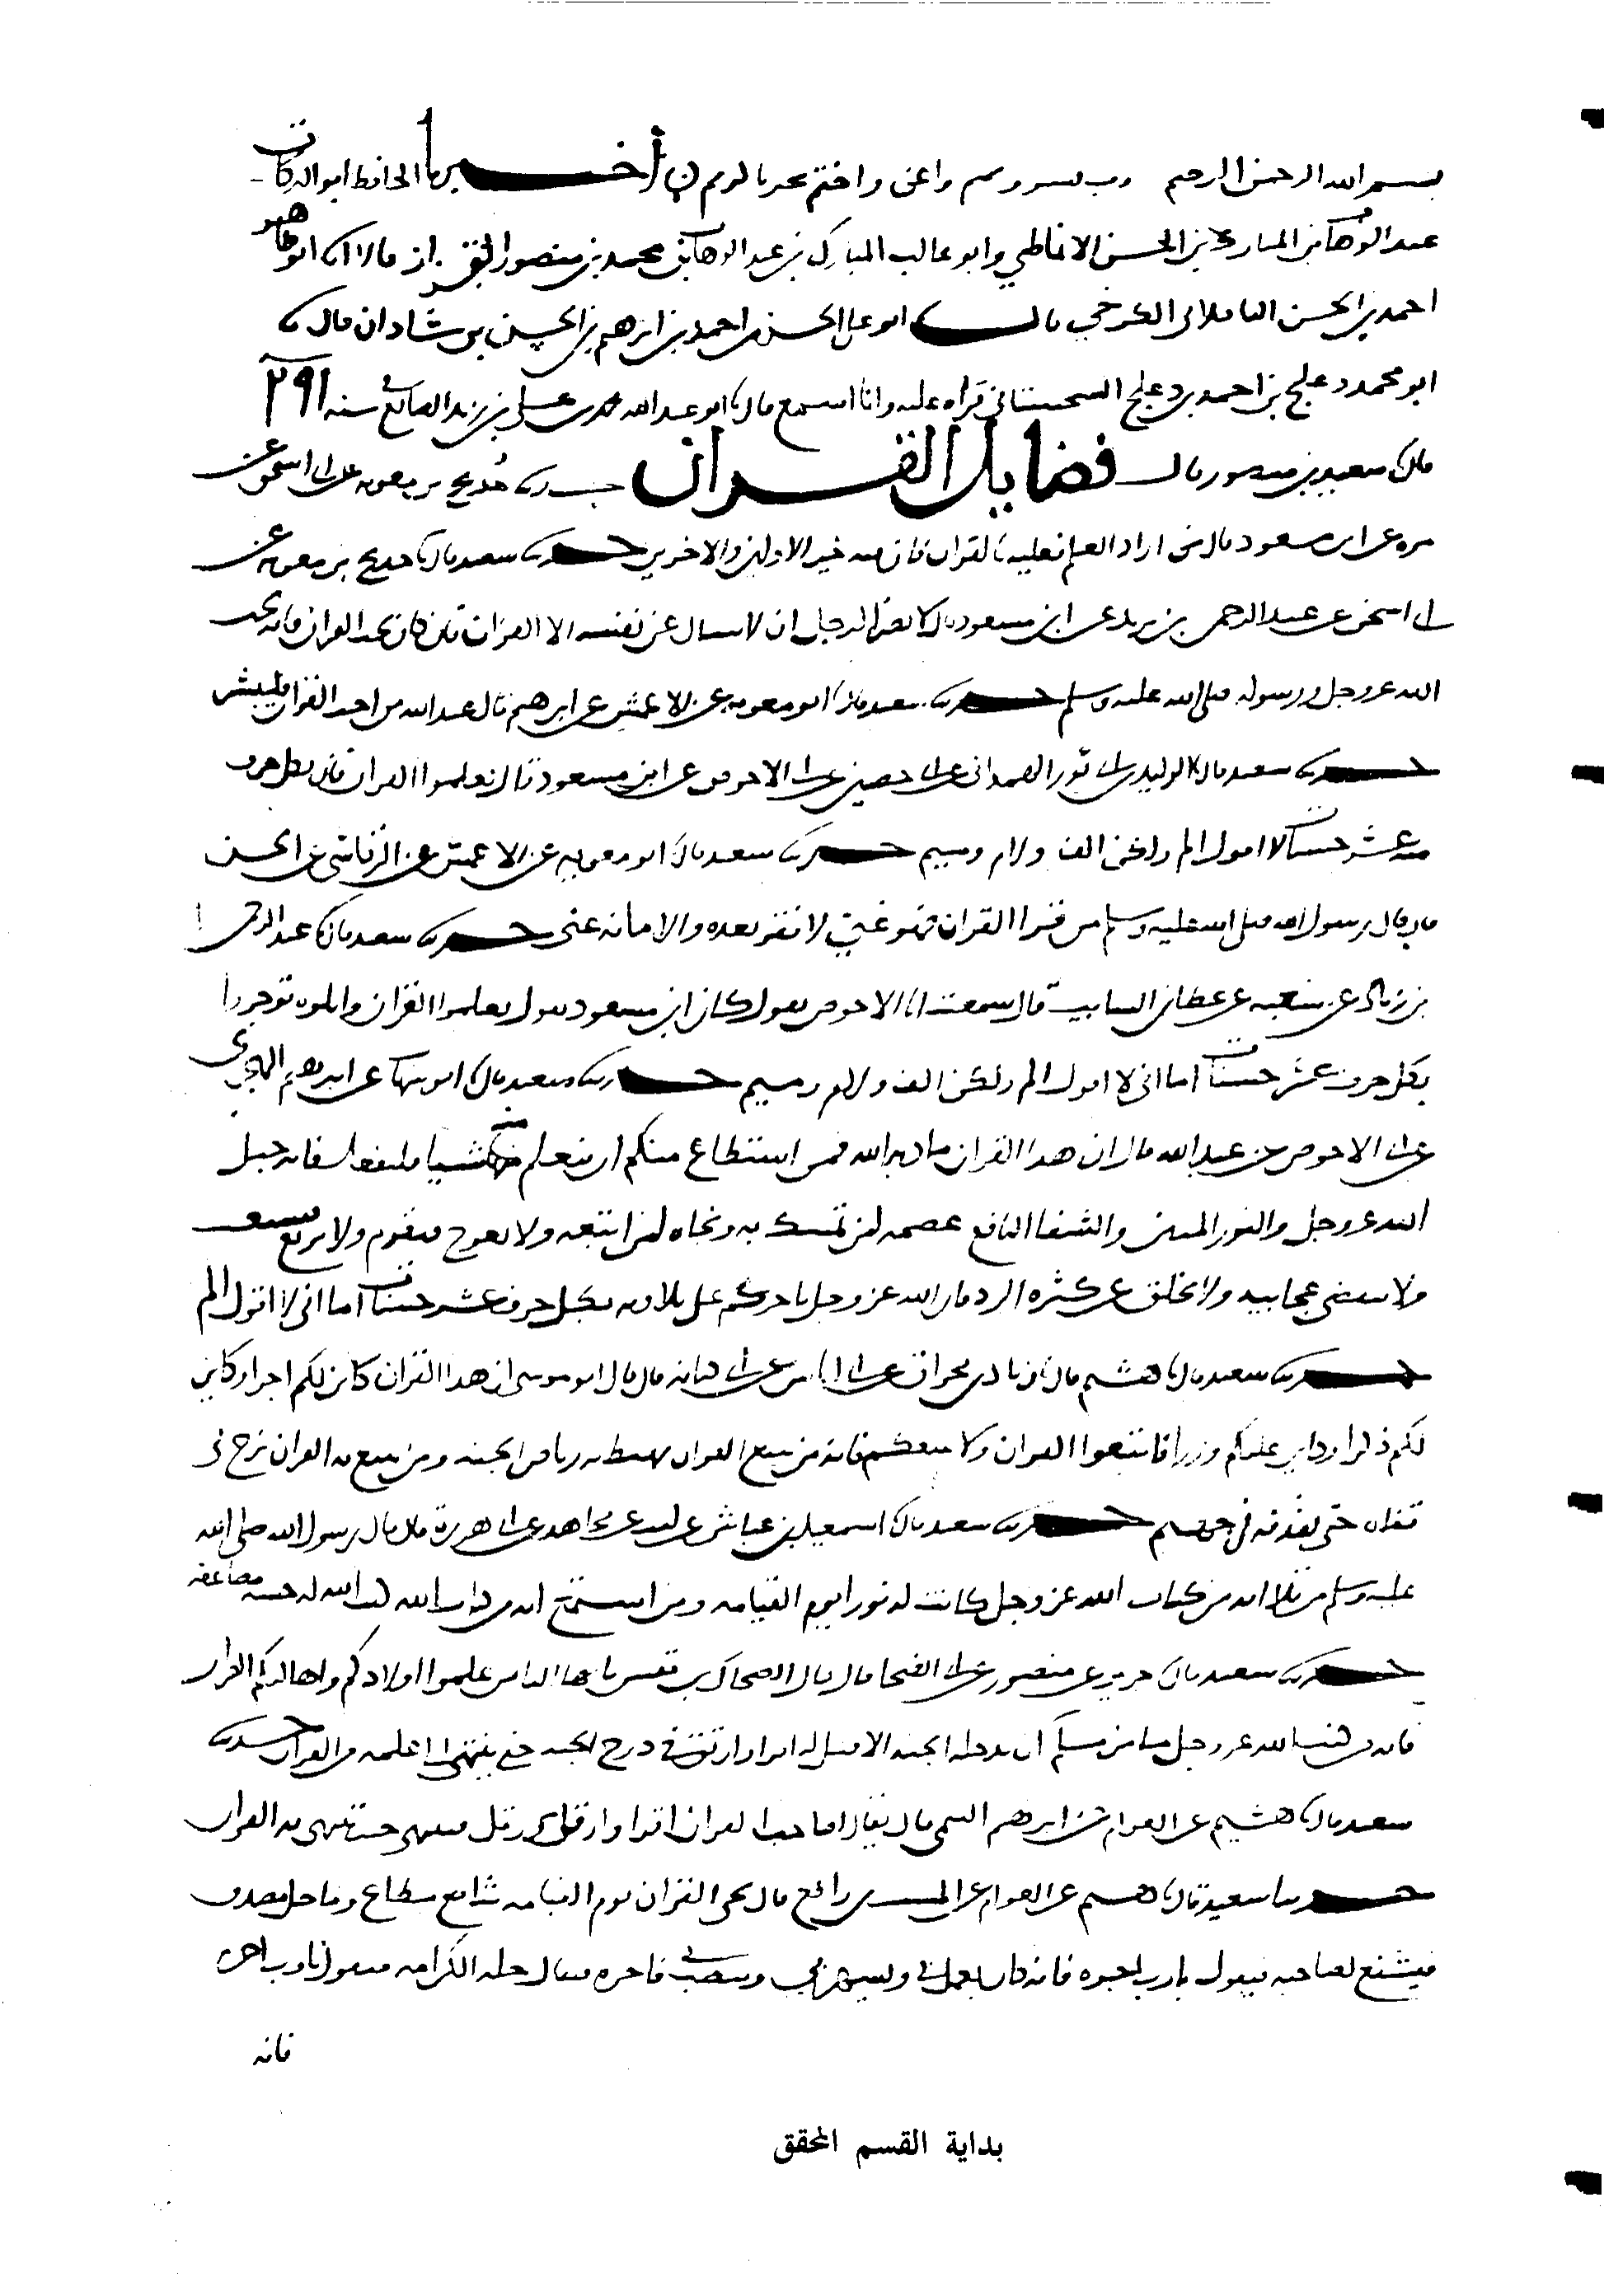 بسم الله الرحمن الرحيم رب يسر وسم واعن واختم بخير يا كريم أخبرنا الحافظ ابو البركات
عبد الوهاب بن المبارك بن الحسن الانماطي وابو غالب المبارك بن عبد الوهاب بن محمد بن منصور القزاز قالا انا ابو طاهر
احمد بن الحسن الباقلاني الكرخي قال انا ابو علي الحسن بن احمد بن ابرهيم بن الحسن بن شاذان قال انا
ابو محمد دعلج بن احمد بن دعلج السجستاني قراه عليه وانا اسمع قال نا ابو عبد الله محمد بن علي بن زيد الصائغ سنه ٢٩١
قال نا سعيد بن منصور قال فضايل القران حدثنا حديج بن معويه عن ابي اسحق عن
مره عن ابن مسعود قال من اراد العلم فعليه بالقران فان فيه خير الاولين والاخرين حدثنا سعيد قال نا حديج بن معويه عن
ابي اسحق عن عبد الرحمن بن يزيد عن ابن مسعود قال لا يضر الرجل ان لا يسال عن نفسه الا القران فان كان يحب القران فانه يحب
الله عز وجل ورسوله صلى الله عليه وسلم حدثنا سعيد قال نا ابو معويه عن الاعمش عن ابرهيم قال قال عبد الله من احب القران فليبشر
حدثنا سعيد قال نا الوليد بن ابي ثور الهمداني عن ابي حصين عن ابي الاحوص عن ابن مسعود قال تعلموا القران فان بكل حرف
منه عشر حسنات لا اقول الم ولكن الف ولام وميم حدثنا سعيد قال نا ابو معويه عن الاعمش عن الرقاشي عن الحسن
قال قال رسول الله صلى الله عليه وسلم من قرا القران فهو غني لا فقر بعده والا ما به غنى حدثنا سعيد قال نا عبد الرحمن
بن زياد عن شعبه عن عطا بن السايب قال سمعت ابا الاحوص يقول كان ابن مسعود يقول تعلموا القران واتلوه توجروا
بكل حرف عشر حسنات اما اني لا اقول الم ولكن الف ولام وميم حدثنا سعيد قال نا ابو شهاب عن ابرهيم الهجري
عن ابي الاحوص عن عبد الله قال ان هذا القران مادبه الله فمن استطاع منكم ان يتعلم منه شيا فليفعل فانه حبل
الله عز وجل والنور المبين والشفا النافع عصمه لمن تمسك به ونجاه لمن اتبعه ولا يعوج فيقوم ولا يزيغ فيستعتب
ولا تنقضي عجايبه ولا يخلق عن كثره الرد فان الله عز وجل ياجركم على تلاوته بكل حرف عشر حسنات اما اني لا اقول الم
حدثنا سعيد قال نا هشيم قال نا زياد بن مخراق عن ابي اياس عن ابي كنانه قال قال ابو موسى ان هذا القران كاين لكم اجرا وكاين
لكم ذكرا وكاين عليكم وزرا فاتبعوا القران ولا يتبعكم فانه من يتبع القران يهبط به رياض الجنه ومن يتبع به القران يزخ في
قفاه حتى يقذفه في جهنم حدثنا سعيد قال نا اسمعيل بن عياش عن ليث عن مجاهد عن ابي هريره قال قال رسول الله صلى الله
عليه وسلم من تلا ايه من كتاب الله عز وجل كانت له نورا يوم القيامه ومن استمع ايه من كتاب الله كتب الله له حسنه مضاعفه
حدثنا سعيد قال نا جرير عن منصور عن ابي الضحا قال قال الضحاك بن قيس يا ايها الناس علموا اولادكم واهاليكم القران
فانه من كتب الله عز وجل له من مسلم ان يدخله الجنه الا قيل له اقرا وارتق في درج الجنه حتى ينتهي الى علمه من القران حدثنا
سعيد قال نا هشيم عن العوام عن ابرهيم التيمي قال يقال لصاحب القران اقرا وارق ورتل فينتهي حيث ينتهي به القران
حدثنا سعيد قال نا هشيم عن العوام عن المسيب بن رافع قال يجي القران يوم القيامه شافع مطاع وماحل مصدق
فيشفع لصاحبه فيقول يا رب اجزه فانه كان يعمل بي ويسهر بي وينصب في فاجزه فيقال حله الكرامه فيقول يا رب اجزه
فانه
بداية القسم المحقق